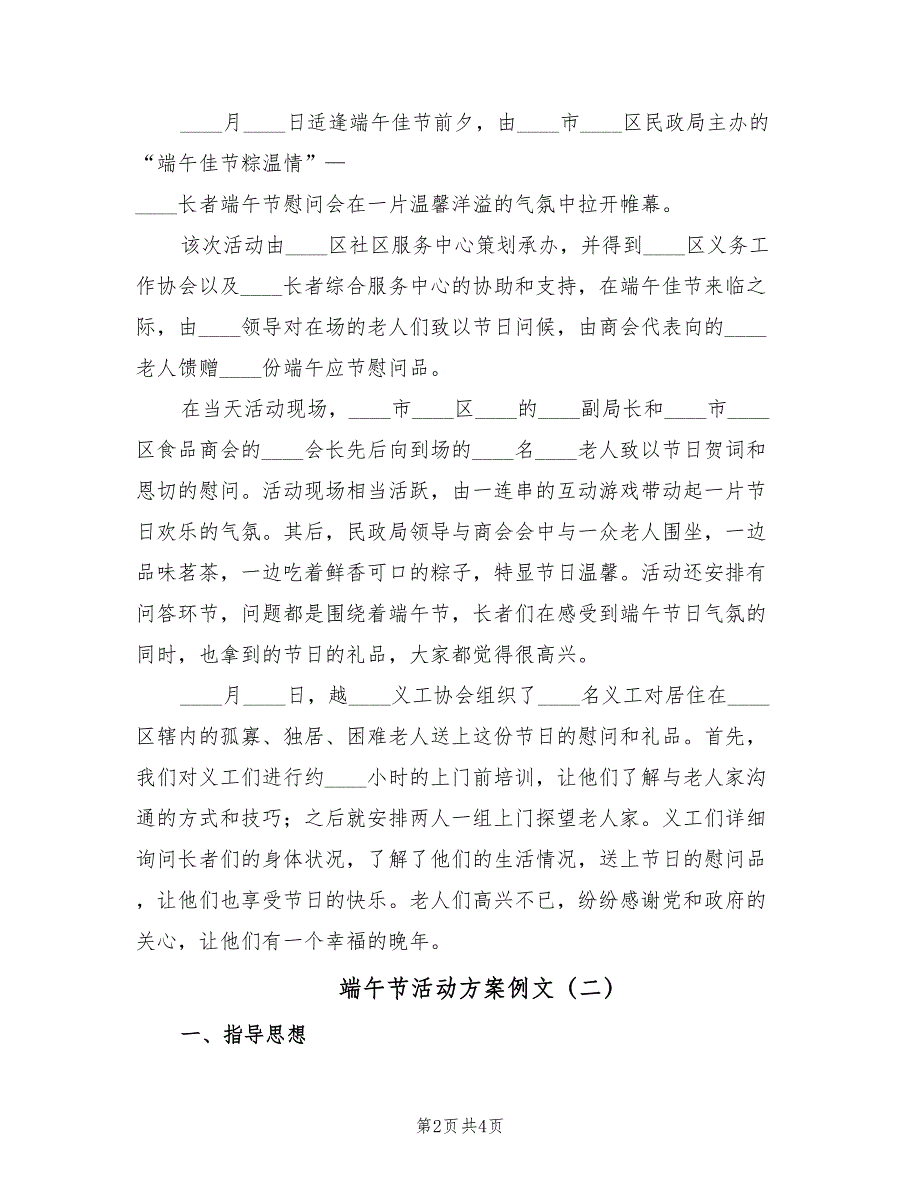 ____月____日适逢端午佳节前夕，由____市____区民政局主办的
“端午佳节粽温情”—
____长者端午节慰问会在一片温馨洋溢的气氛中拉开帷幕。
该次活动由____区社区服务中心策划承办，并得到____区义务工
作协会以及____长者综合服务中心的协助和支持，在端午佳节来临之
际，由____领导对在场的老人们致以节日问候，由商会代表向的____
老人馈赠____份端午应节慰问品。
在当天活动现场，____市____区____的____副局长和____市____
区食品商会的____会长先后向到场的____名____老人致以节日贺词和
恩切的慰问。活动现场相当活跃，由一连串的互动游戏带动起一片节
日欢乐的气氛。其后，民政局领导与商会会中与一众老人围坐，一边
品味茗茶，一边吃着鲜香可口的粽子，特显节日温馨。活动还安排有
问答环节，问题都是围绕着端午节，长者们在感受到端午节日气氛的
同时，也拿到的节日的礼品，大家都觉得很高兴。
____月____日，越____义工协会组织了____名义工对居住在____
区辖内的孤寡、独居、困难老人送上这份节日的慰问和礼品。首先，
我们对义工们进行约____小时的上门前培训，让他们了解与老人家沟
通的方式和技巧；之后就安排两人一组上门探望老人家。义工们详细
询问长者们的身体状况，了解了他们的生活情况，送上节日的慰问品
，让他们也享受节日的快乐。老人们高兴不已，纷纷感谢党和政府的
关心，让他们有一个幸福的晚年。
端午节活动方案例文（二）
一、指导思想
第2页共4页